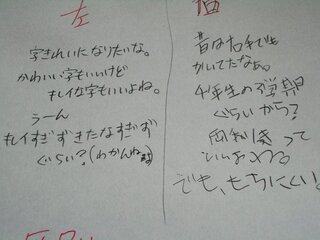 左
字きれいになりたいな。
かわいい字もいいけど
キレイな字もいいよね。
うーん
キレイすぎずきたなすぎず
ぐらい?(わかんねぇ
右
昔は右手でも
かいてたなぁ。
年生の
ぐらいから?
両利きって
いいよね
でも、もちにくい!